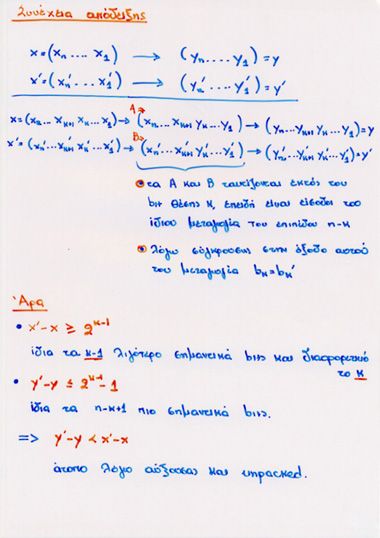 Συνέχεια απόδειξης
x=(xₙ.... x₁) → (yₙ.... y₁)=y
x'=(xₙ'.... x₁') → (yₙ'.... y₁')=y'
x=(xₙ... xₖ₊₁ xₖ... x₁) → A (xₙ... xₖ₊₁ yₖ... y₁) → (yₙ... yₖ₊₁ yₖ... y₁)=y
x'=(xₙ'... xₖ₊₁' xₖ'... x₁') → B (xₙ'... xₖ₊₁' yₖ'... y₁') → (yₙ'... yₖ₊₁' yₖ'... y₁')=y'
τα Α και Β ταυτίζονται εκτός του
bit θέσης κ, επειδή είναι είσοδοι του
ίδιου μεταγωγέα του επιπέδου n-κ
λόγω σύγκρουσης στην έξοδο αυτού
του μεταγωγέα bₖ=bₖ'
Άρα
• x'-x ≥ 2ᵏ⁻¹
ίδια τα κ-1 λιγότερο σημαντικά bits και διαφορετικό
το κ
• y'-y ≤ 2ᵏ⁻¹-1
ίδια τα n-κ+1 πιο σημαντικά bits.
=> y'-y < x'-x
άτοπο λόγο αύξουσας και unpacked.